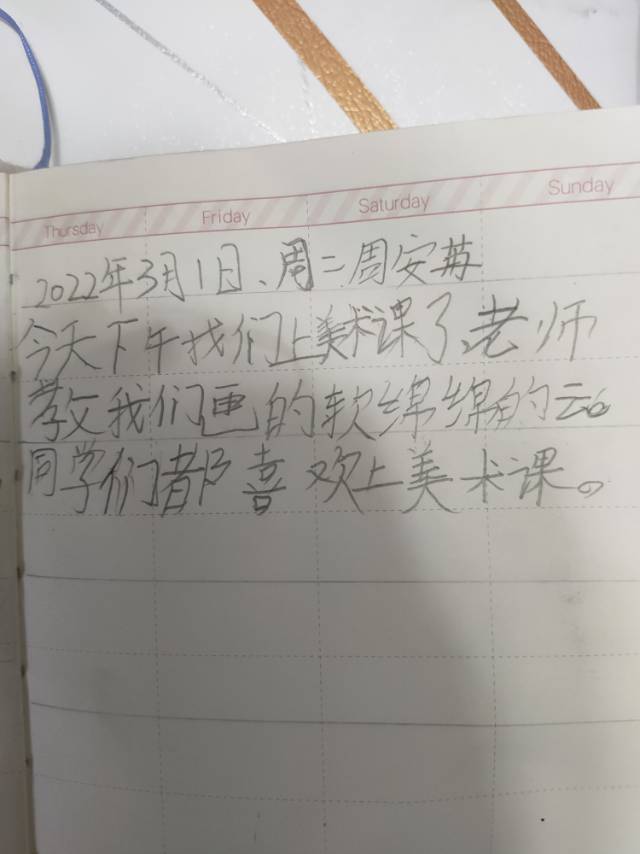 Thursday Friday Saturday Sunday
2022年3月1日、周二周安苒
今天下午我们上美术课了,老师
教我们画的软绵绵的云。
同学们都喜欢上美术课。